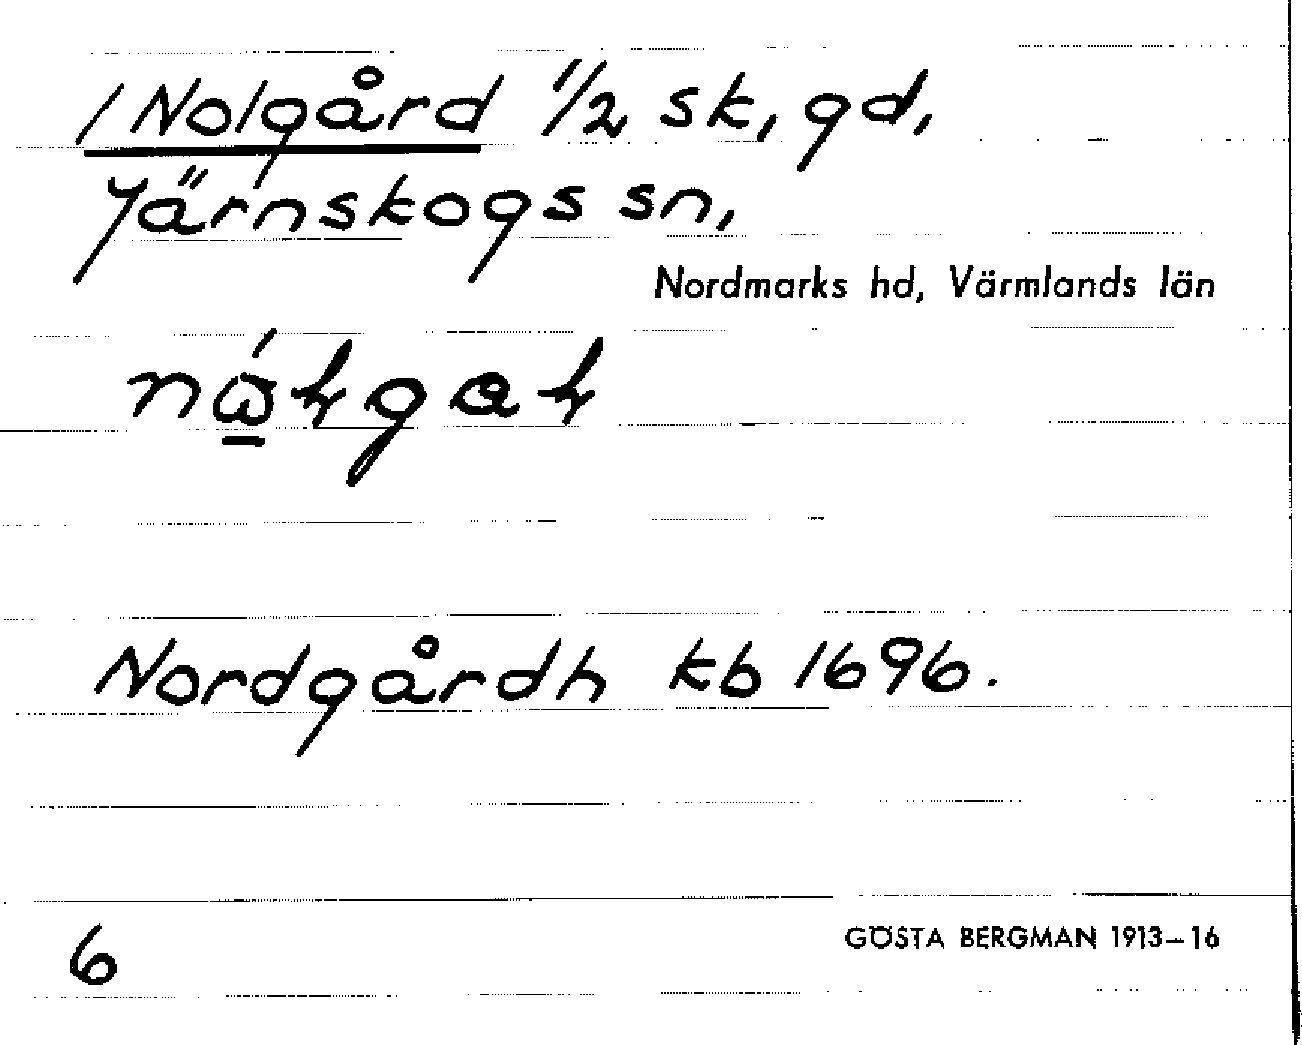 / Nolgård 1/2 sk, gd,
Järnskogs sn,
Nordmarks hd, Värmlands län
Nordgårdh kb 1696.
6
GÖSTA BERGMAN 1913–16